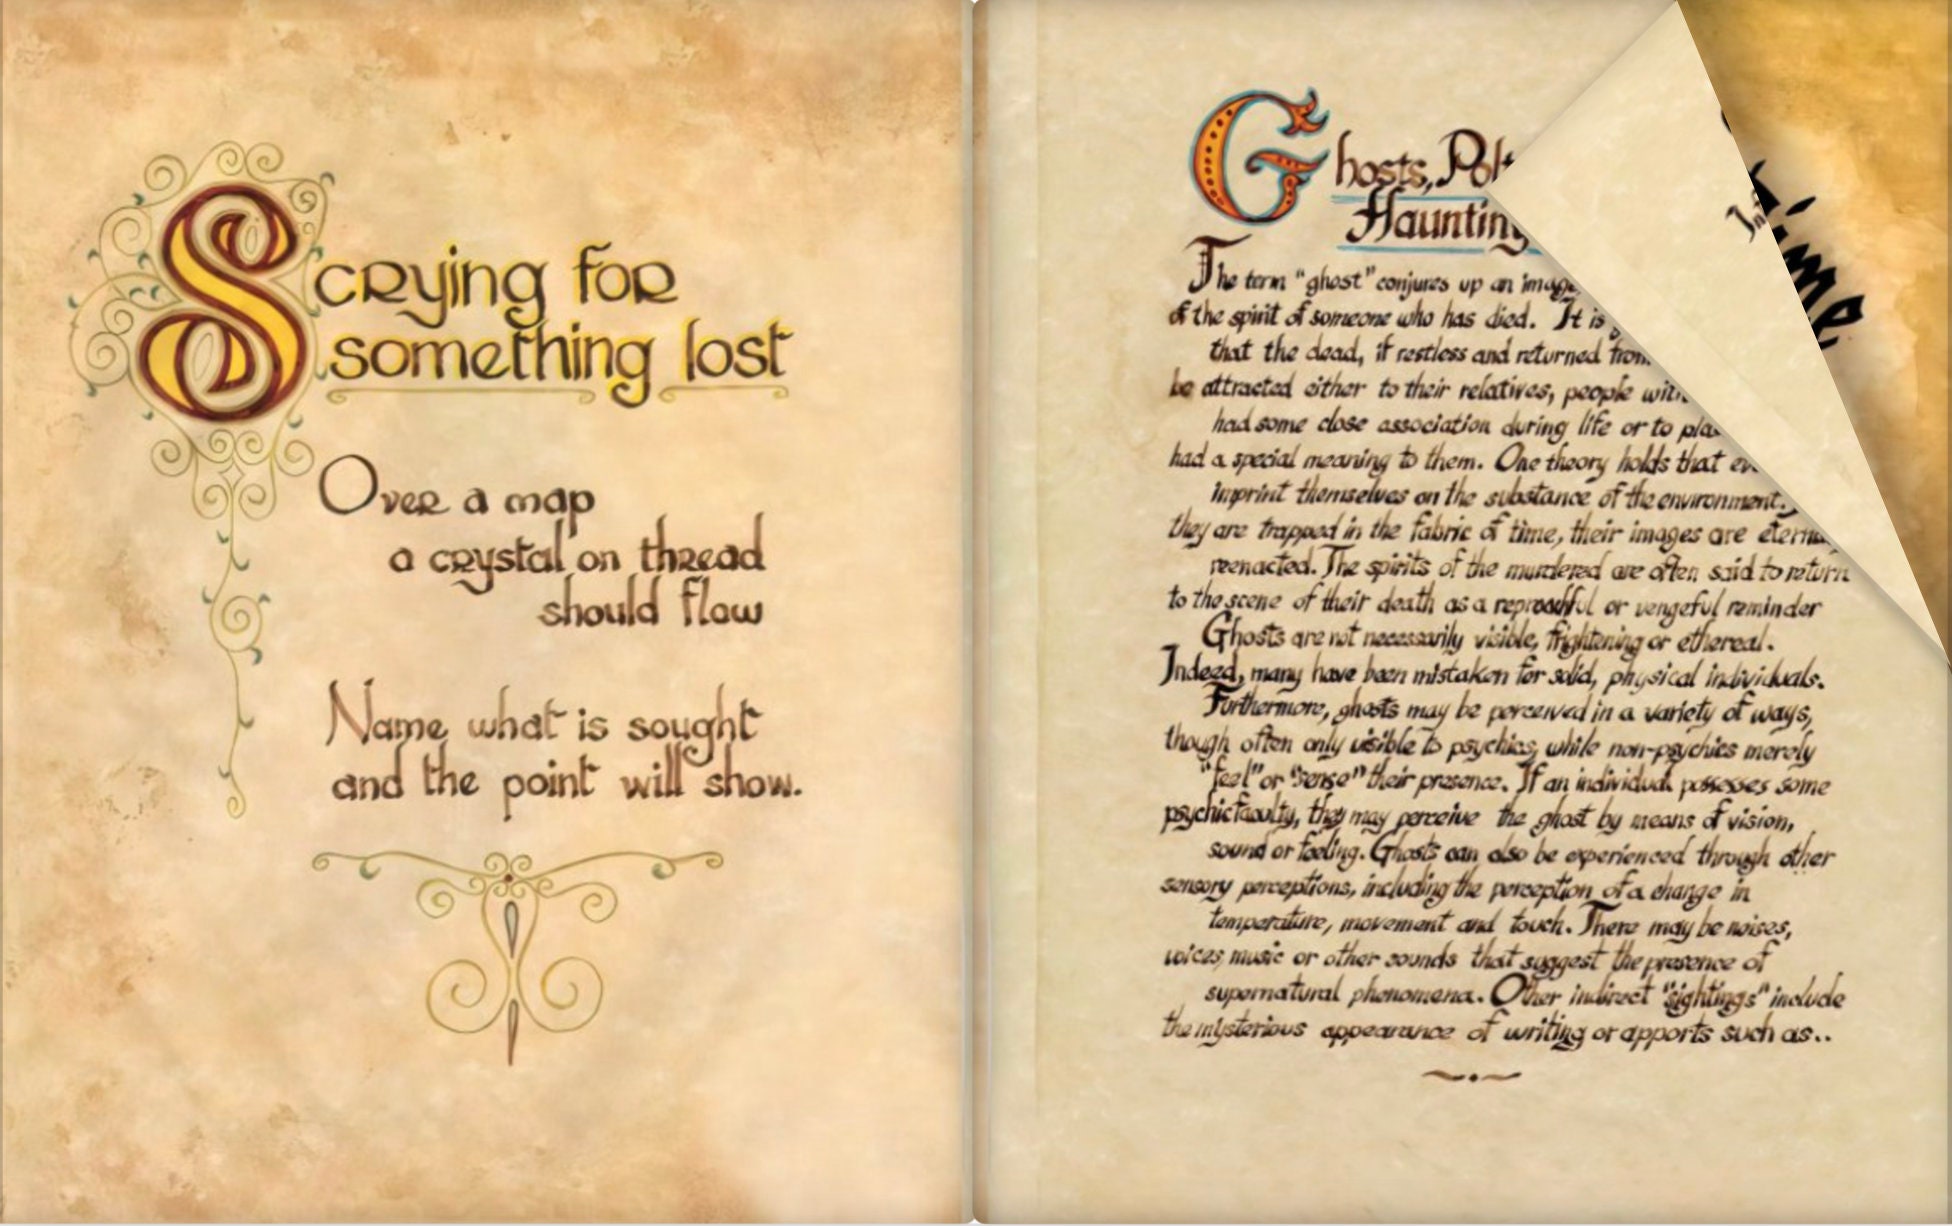 Scrying for
something lost
Over a map
a crystal on thread
should flow
Name what is sought
and the point will show.
Ghosts, Polt
Haunting
The term "ghost" conjures up an image
of the spirit of someone who has died. It is
that the dead, if restless and returned from
be attracted either to their relatives, people with
had some close association during life or to pla
had a special meaning to them. One theory holds that ev
imprint themselves on the substance of the environment.
they are trapped in the fabric of time, their images are eterna
reenacted. The spirits of the murdered are often said to return
to the scene of their death as a reproachful or vengeful reminder
Ghosts are not necessarily visible, frightening or ethereal.
Indeed, many have been mistaken for solid, physical individuals.
Furthermore, ghosts may be perceived in a variety of ways,
though often only visible to psychics, while non-psychics merely
"feel" or "sense" their presence. If an individual possesses some
psychic faculty, they may perceive the ghost by means of vision,
sound or feeling. Ghosts can also be experienced through other
sensory perceptions, including the perception of a change in
temperature, movement and touch. There may be noises,
voices, music or other sounds that suggest the presence of
supernatural phenomena. Other indirect "sightings" include
the mysterious appearance of writing or apports such as..
In
ime